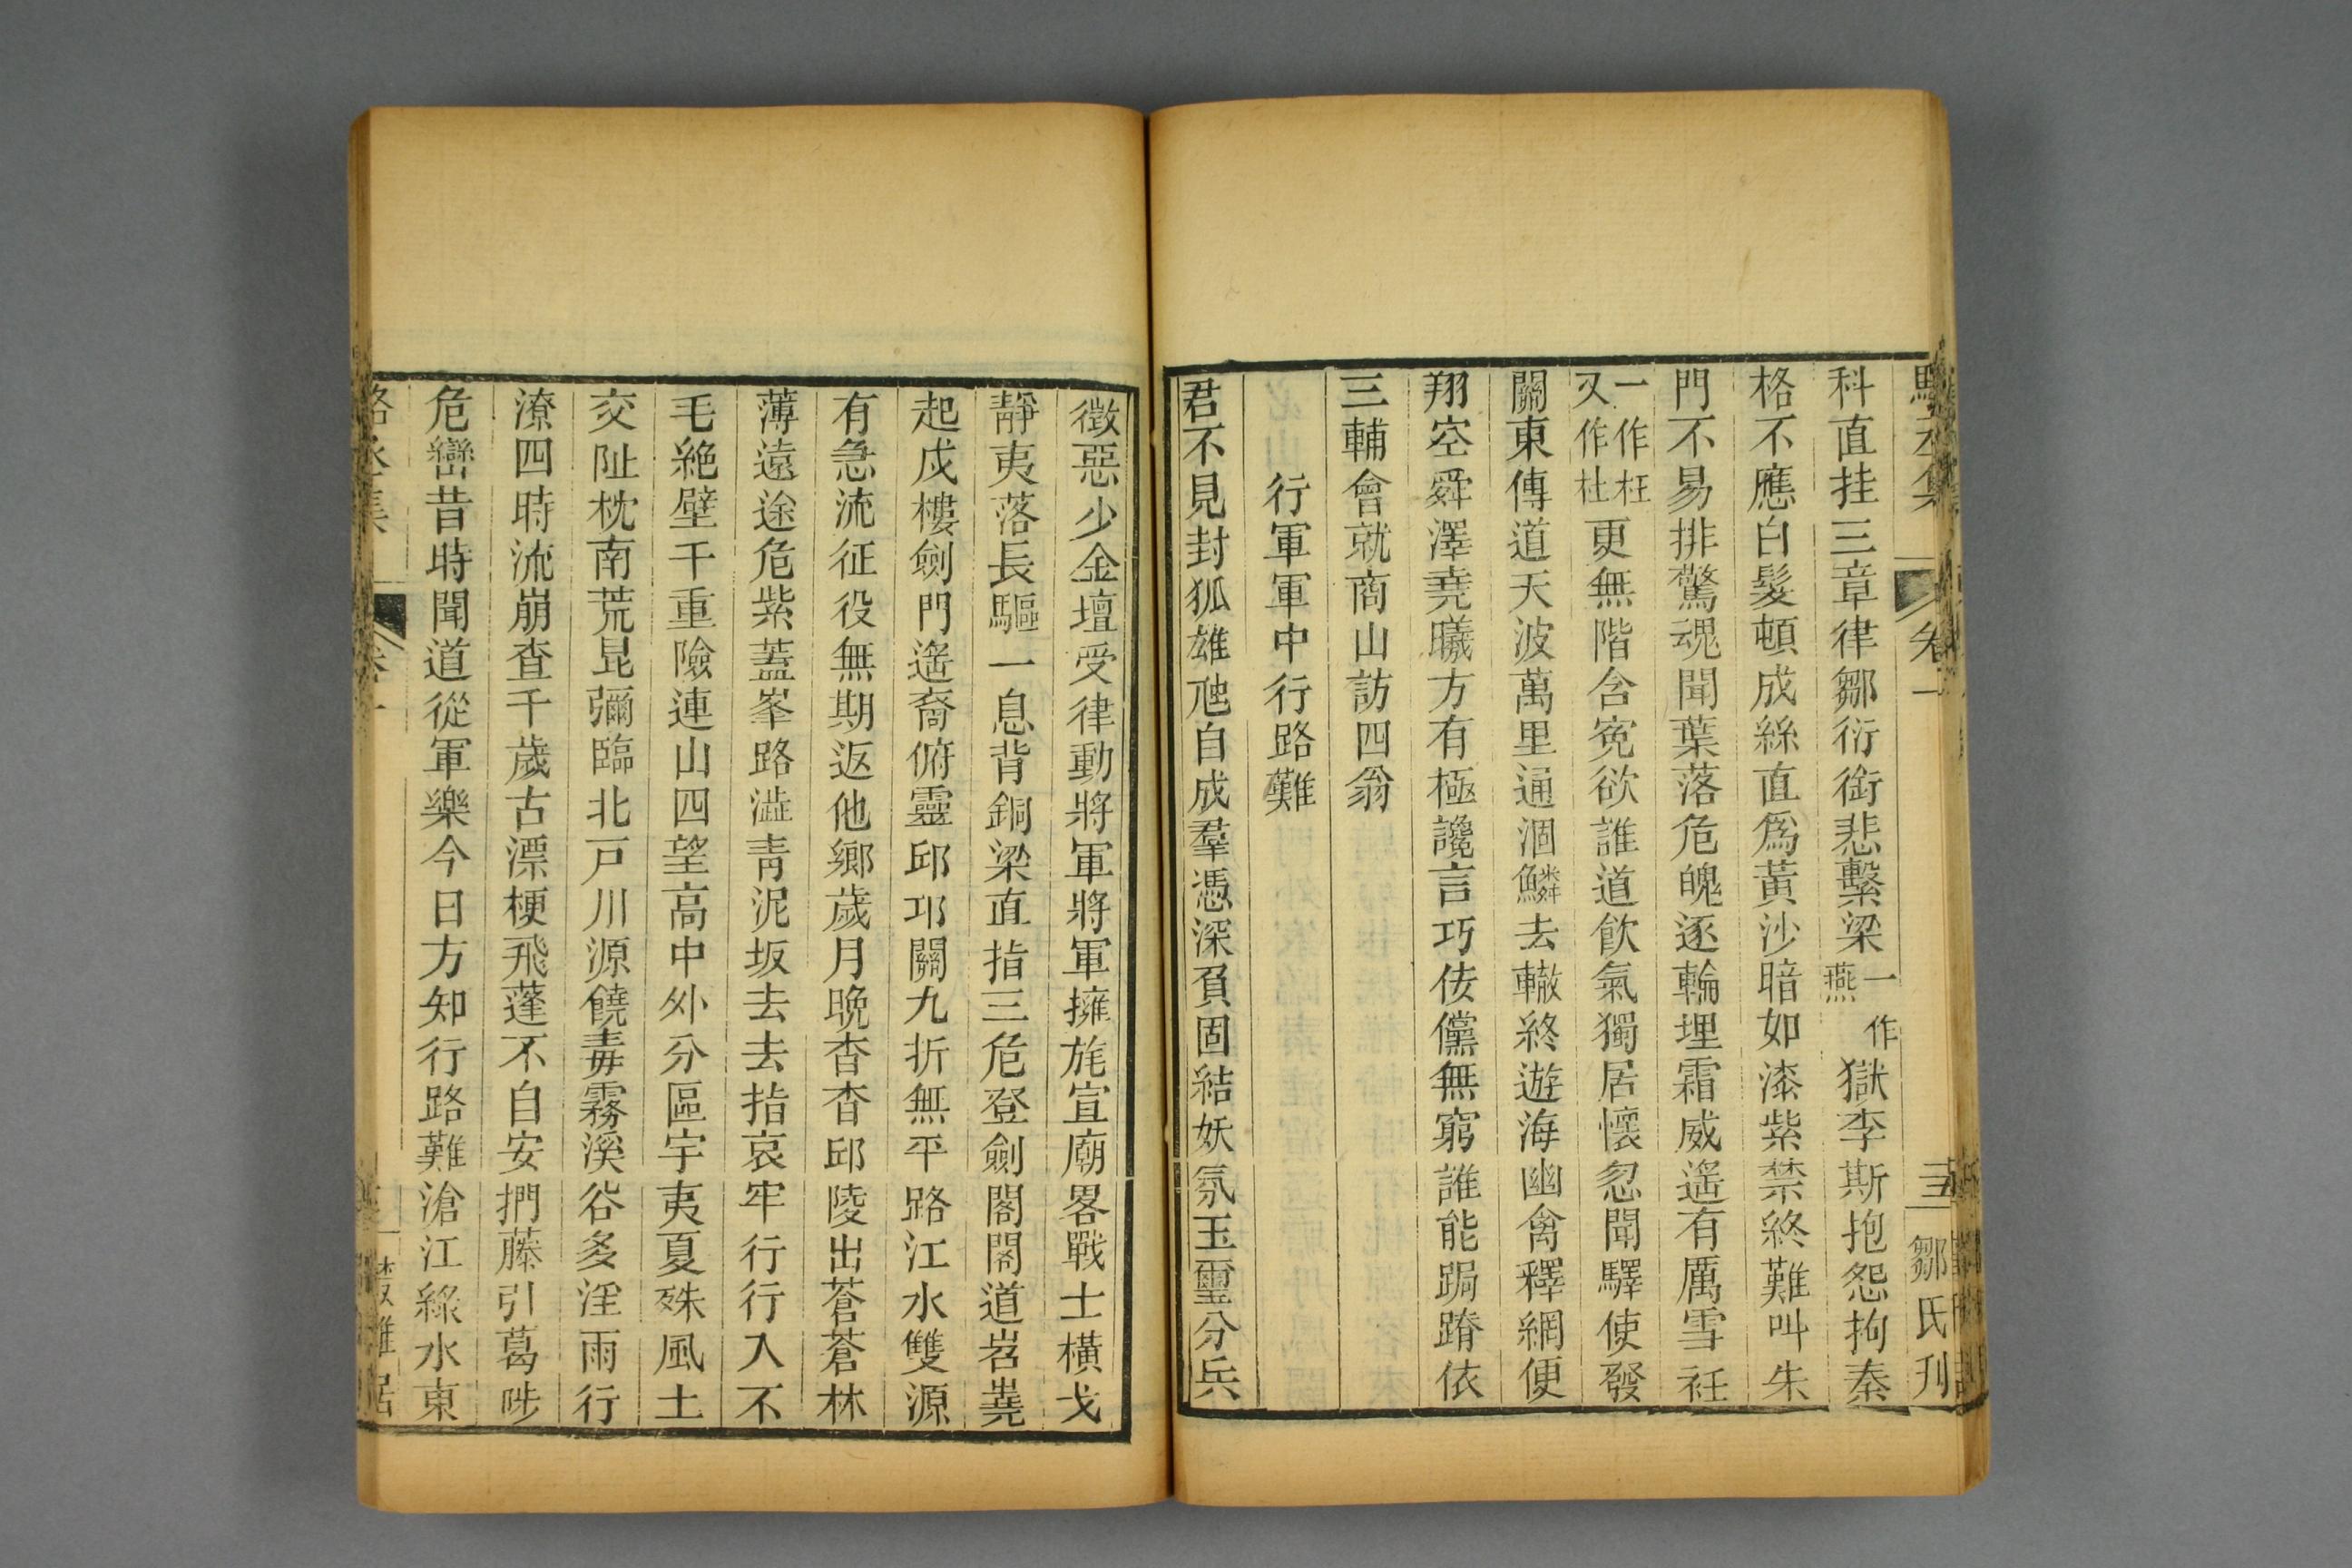 科直挂三章律鄒衍銜悲繫梁一作燕獄李斯抱怨拘秦
格不應白髮頓成絲直爲黃沙暗如漆紫禁終難叫朱
門不易排驚魂聞葉落危魄逐輪埋霜威遙有厲雪枉
一作枉又作杜更無階含寃欲誰道飲氣獨居懷忽聞驛使發
關東傳道天波萬里通涸鱗去轍終遊海幽禽釋網便
翔空舜澤堯曦方有極讒言巧佞儻無窮誰能跼蹐依
三輔會就商山訪四翁
行軍軍中行路難
君不見封狐雄虺自成羣憑深負固結妖氛玉璽分兵
卷一
三五
鄒氏刋
徵惡少金壇受律動將軍將軍擁旄宣廟畧戰士橫戈
靜夷落長驅一息背銅梁直指三危登劍閣閣道岧嶤
起戍樓劍門遙裔俯靈邱邛關九折無平路江水雙源
有急流征役無期返他鄉歲月晚杳杳邱陵出蒼蒼林
薄遠途危紫蓋峯路澁青泥坂去去指哀牢行行入不
毛絶壁千重險連山四望高中外分區宇夷夏殊風土
交趾枕南荒昆彌臨北戸川源饒毒霧溪谷多淫雨行
潦四時流崩查千歲古漂梗飛蓬不自安捫藤引葛陟
危巒昔時聞道從軍樂今日方知行路難滄江綠水東